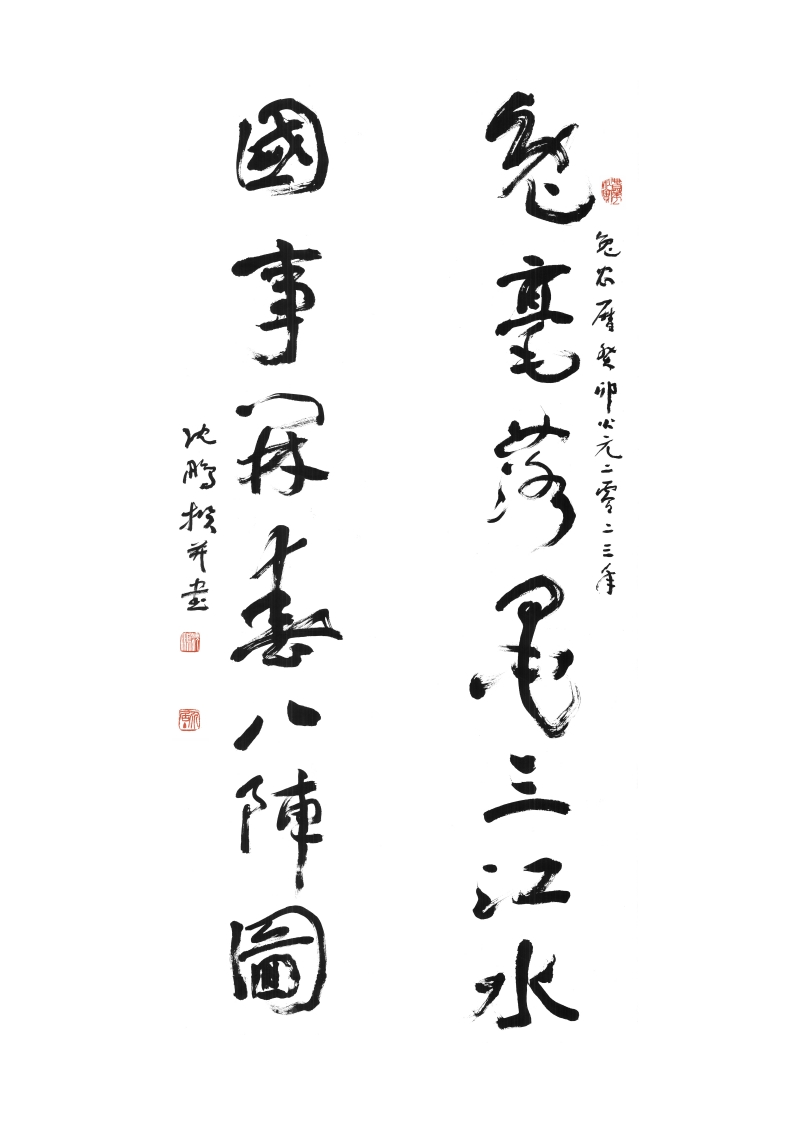 兔毫落墨三江水
兔农曆癸卯公元二零二三年
國事開春八陣圖
沈鵬撰并書